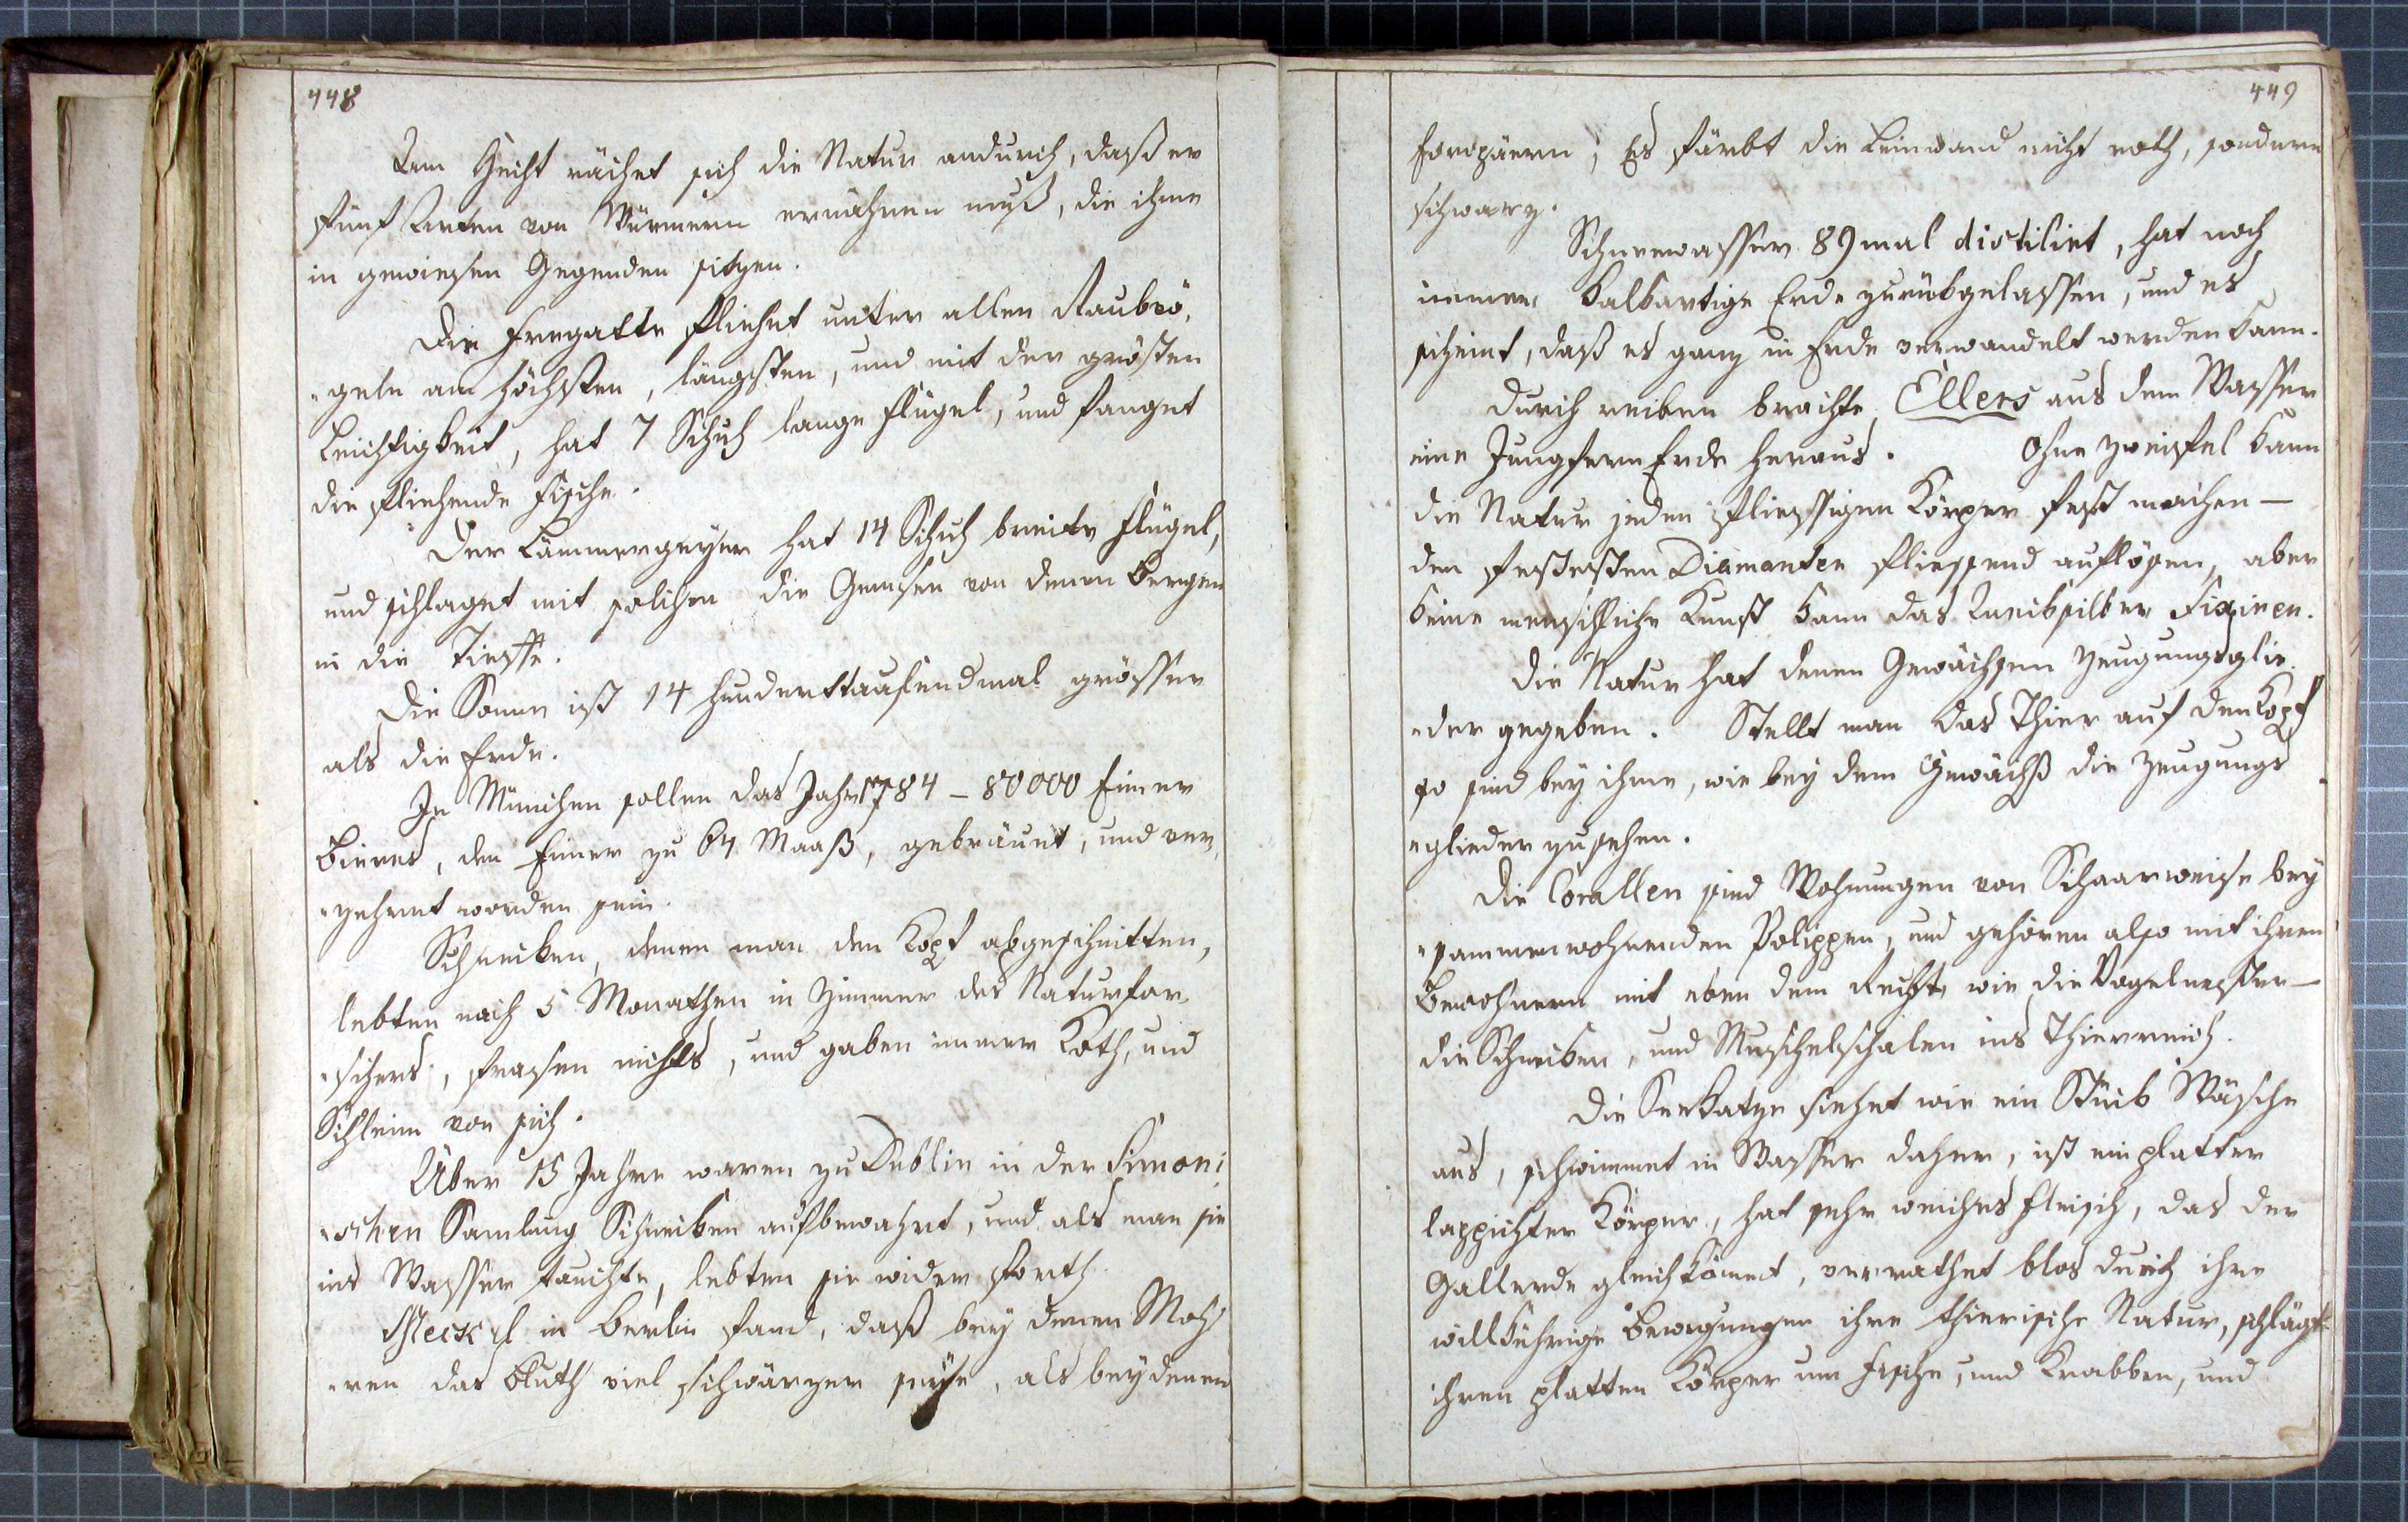 448
Am Hecht rächet sich die Natur andurch, daß er
fünf Arten von Würmern ernähren muß, die ihme
in gewiesen Gegenden sitzen.
Die Fregatte fliehet unter allen Raubvö„
„geln am höchsten, längsten, und mit der grösten
Leichtigkeit, hat 7 Schuh lange Flügel, und fanget
die fliehende Fische.
Der Lämmergeyer hat 14 Schuh breite Flügel,
und schlaget mit solchen die Gemsen von denen Bergen
in die Tieffe.
Die Sonne ist 14 hunderttausendmal grösser
als die Erde.
In München sollen das Jahr 1784 – 80000 Eimer
Bieres, den Eimer zu 64 Maaß, gebräuet, und ver„
„zehret worden sein.
Schneiken, denen man den Kopf abgeschnitten,
lebten nach 5 Monathen in Zimmer des Naturfor„
„schers, frassen nichts, und gaben immer Koth, und
Schleim von sich.
Über 15 Jahre waren zu Dublin in der Simoni„
„schen Samlung Schneiken aufbewahret, und als man sie
ins Wasser tauchte, lebten sie wider forth.
Meckel in Berlin fand, daß bey denen Moh„
„ren das Bluth viel schwärzer seye, als bey denen
449
Europäern; Es färbt die Leinwand nicht roth, sondern
schwarz.
Schneewasser 89 mal distiliet, hat noch
immer kalkartige Erde zurükgelassen, und es
scheint, daß es ganz in Erde verwandelt werden kann.
Durch reiben brachte Ellers aus dem Wasser
eine Jungfern Erde heraus. Ohne Zweifel kann
die Natur jeden fliessigen Körper fest machen –
den festesten Diamanten fliessend auflösen, aber
keine menschliche Kunst kann das Queiksilber Fixiren.
Die Natur hat denen Gewächsen Zeugungsglie„
„der gegeben. Stellt man das Thier auf den Kopf
so sind bey ihme, wie bey dem Gewächß die Zeugungs„
„glieder zu sehen.
Die Corallen sind Wohnungen von Schaarweise bey„
„sammenwohnenden Polippen, und gehören also mit ihren
Bewohnern mit eben dem Recht, wie die Vogelnester –
die Schneiken, und Muschelschalen ins Thierreich.
Die Seekatze siehet wie ein Stük Wäsche
aus, schwimmet in Wasser daher, ist ein platter
lappichter Körper, hat sehr weiches Fleisch, das der
Gallerde gleich kömet, verrathet blos durch ihre
willkührige Bewegungen ihre thierische Natur, schlägt
ihren platten Körper um Fische, und Krabben, und